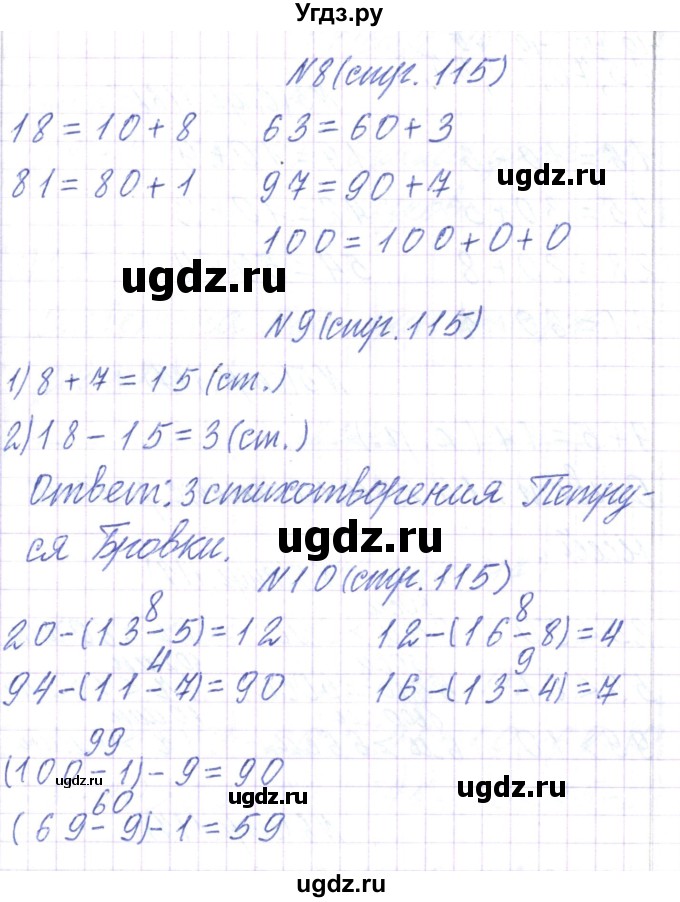 Угдз.ру
N8(стр. 115)
18=10+8 63=60+3
81=80+1 97=90+7
ugdz.ru
100=100+0+0
ugdz.ru
N9(стр. 115)
1) 8+7=15(ст.)
2) 18-15=3(ст.)
Ответ: 3 стихотворения Петру-
ся Бровки.
ugdz.ru
N10(стр. 115)
8 8
20-(13-5)=12 12-(16-8)=4
4 9
94-(11-7)=90 16-(13-4)=7
99
(100-1)-9=90
ugdz.ru ugdz.ru ugdz.ru
60
(69-9)-1=59
ugdz.ru
ugdz.ru